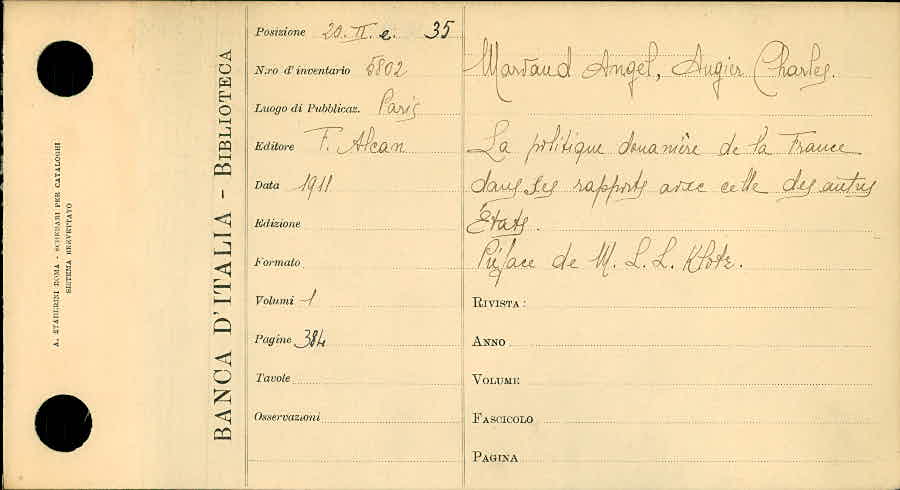 A. STADERINI ROMA - SCHEDARI PER CATALOGHI
SISTEMA REZVETTATO
BANCA D'ITALIA - BIBLIOTECA
Posizione 20. II. e. 35
N.ro d'inventario 5802
Luogo di Pubblicaz. Paris
Editore F. Alcan
Data 1911
Edizione
Formato
Volumi 1
Pagine 384
Tavole
Osservazioni
Marvaud Angel, Augier Charles.
La politique douanière de la France
dans ses rapports avec celle des autres
États.
Préface de M. L. L. Klotz.
RIVISTA:
ANNO
VOLUME
FASCICOLO
PAGINA